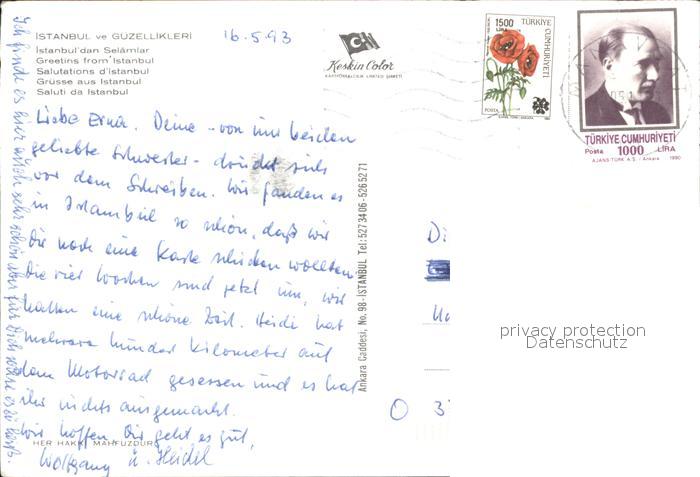 İSTANBUL ve GÜZELLİKLERİ
İstanbul'dan Selâmlar
Greetins from İstanbul
Salutations d'istanbul
Grüsse aus İstanbul
Saluti da İstanbul
16.5.93
Keskin Color
KARTPOSTALCILIK LİMİTED ŞİRKETİ
1500
LİRA
TÜRKİYE
CUMHURİYETİ
POSTA
TÜRKİYE CUMHURİYETİ
Posta 1000 LİRA
AJANS-TÜRK A.Ş. / Ankara 1990
Liebe Erna. Deine - von uns beiden
geliebte Schwester - drückt sich
vor dem Schreiben. Wir fanden es
in Istambul so schön, daß wir
Dir noch eine Karte schicken wollten.
Die vier Wochen sind jetzt um, wir
hatten eine schöne Zeit. Heidi hat
mehrere hundert Kilometer auf
dem Motorrad gesessen und es hat
ihr nichts ausgemacht.
Wir hoffen, Dir geht es gut,
Wolfgang u. Heidel
Ich finde es hier auch sehr schön aber für Dich wäre es zu
HER HAKKI MAHFUZDUR
Ankara Caddesi, No. 98 - İSTANBUL Tel: 527 34 06 - 526 52 71
Di
3
privacy protection
Datenschutz